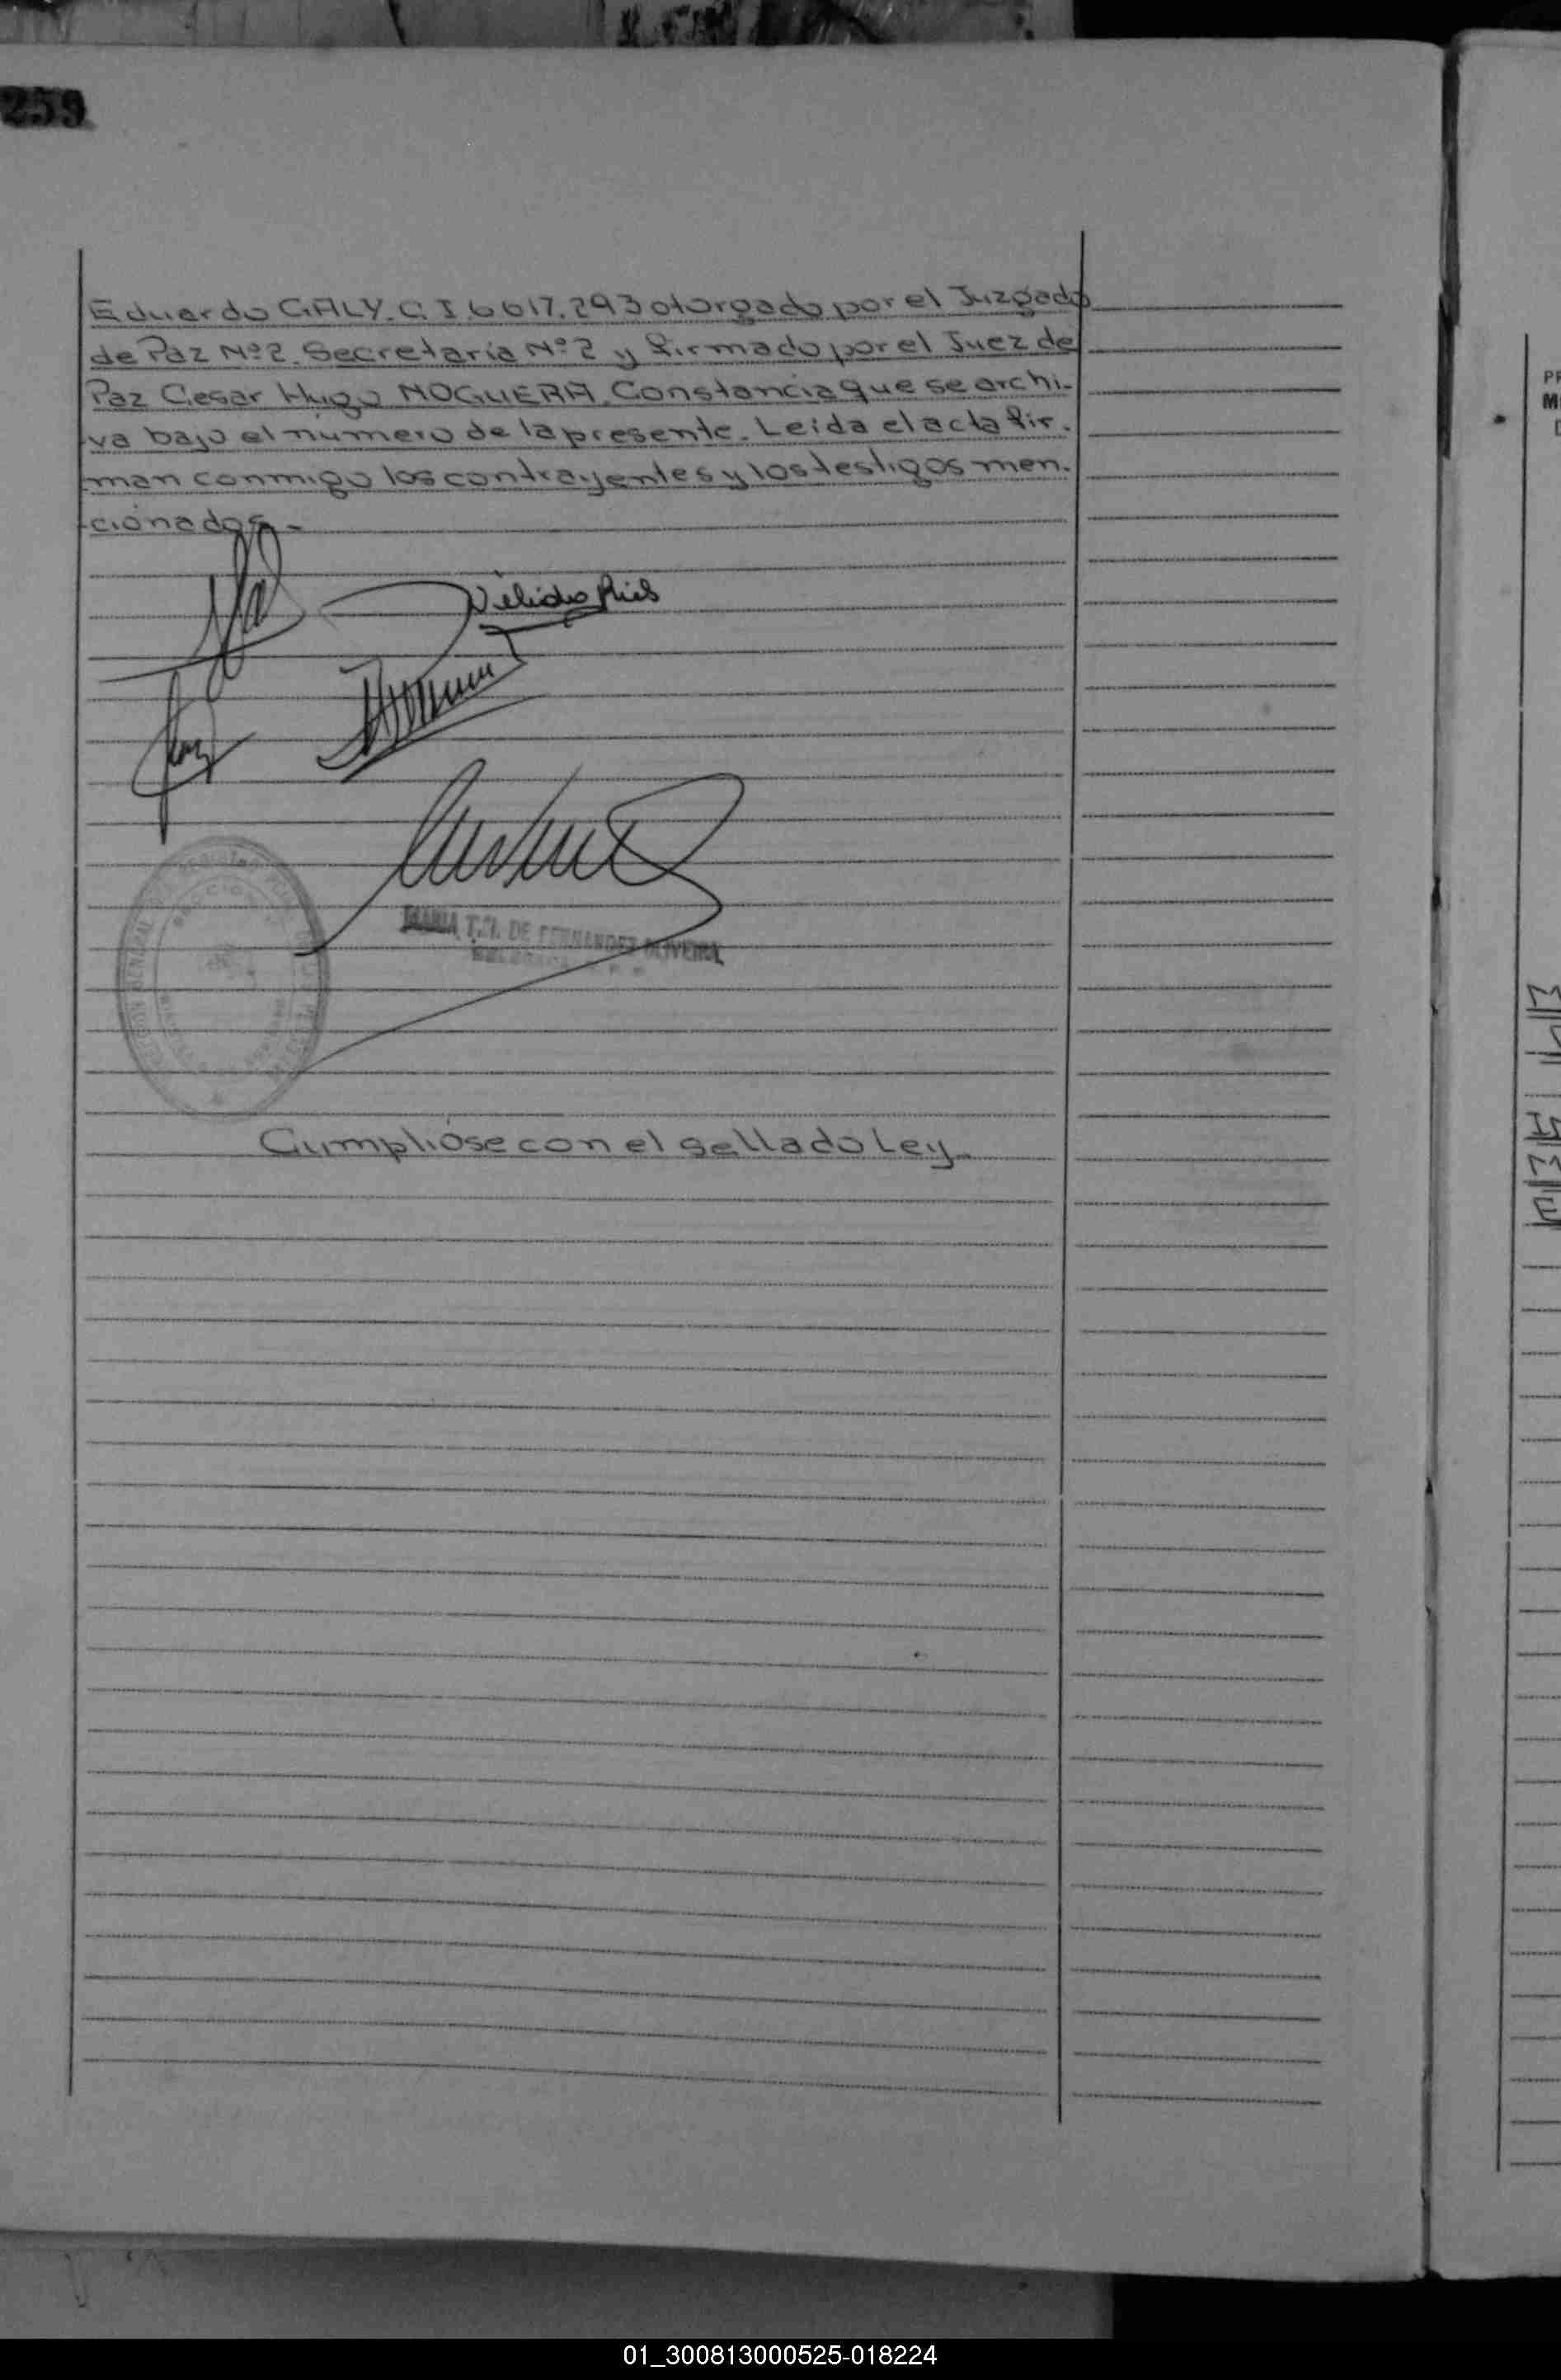 259
Eduardo GALY. C I 6617.293 otorgado por el Juzgado
de Paz Nº2. Secretaría Nº2 y firmado por el Juez de
Paz Cesar Hugo NOGUERA. Constancia que se archi-
va bajo el número de la presente. Leída el acta fir-
man conmigo los contrayentes y los testigos men-
cionados.-
MARIA T. DE FERNANDEZ OLIVEIRA
Cumplióse con el sellado Ley.-
01_300813000525-018224